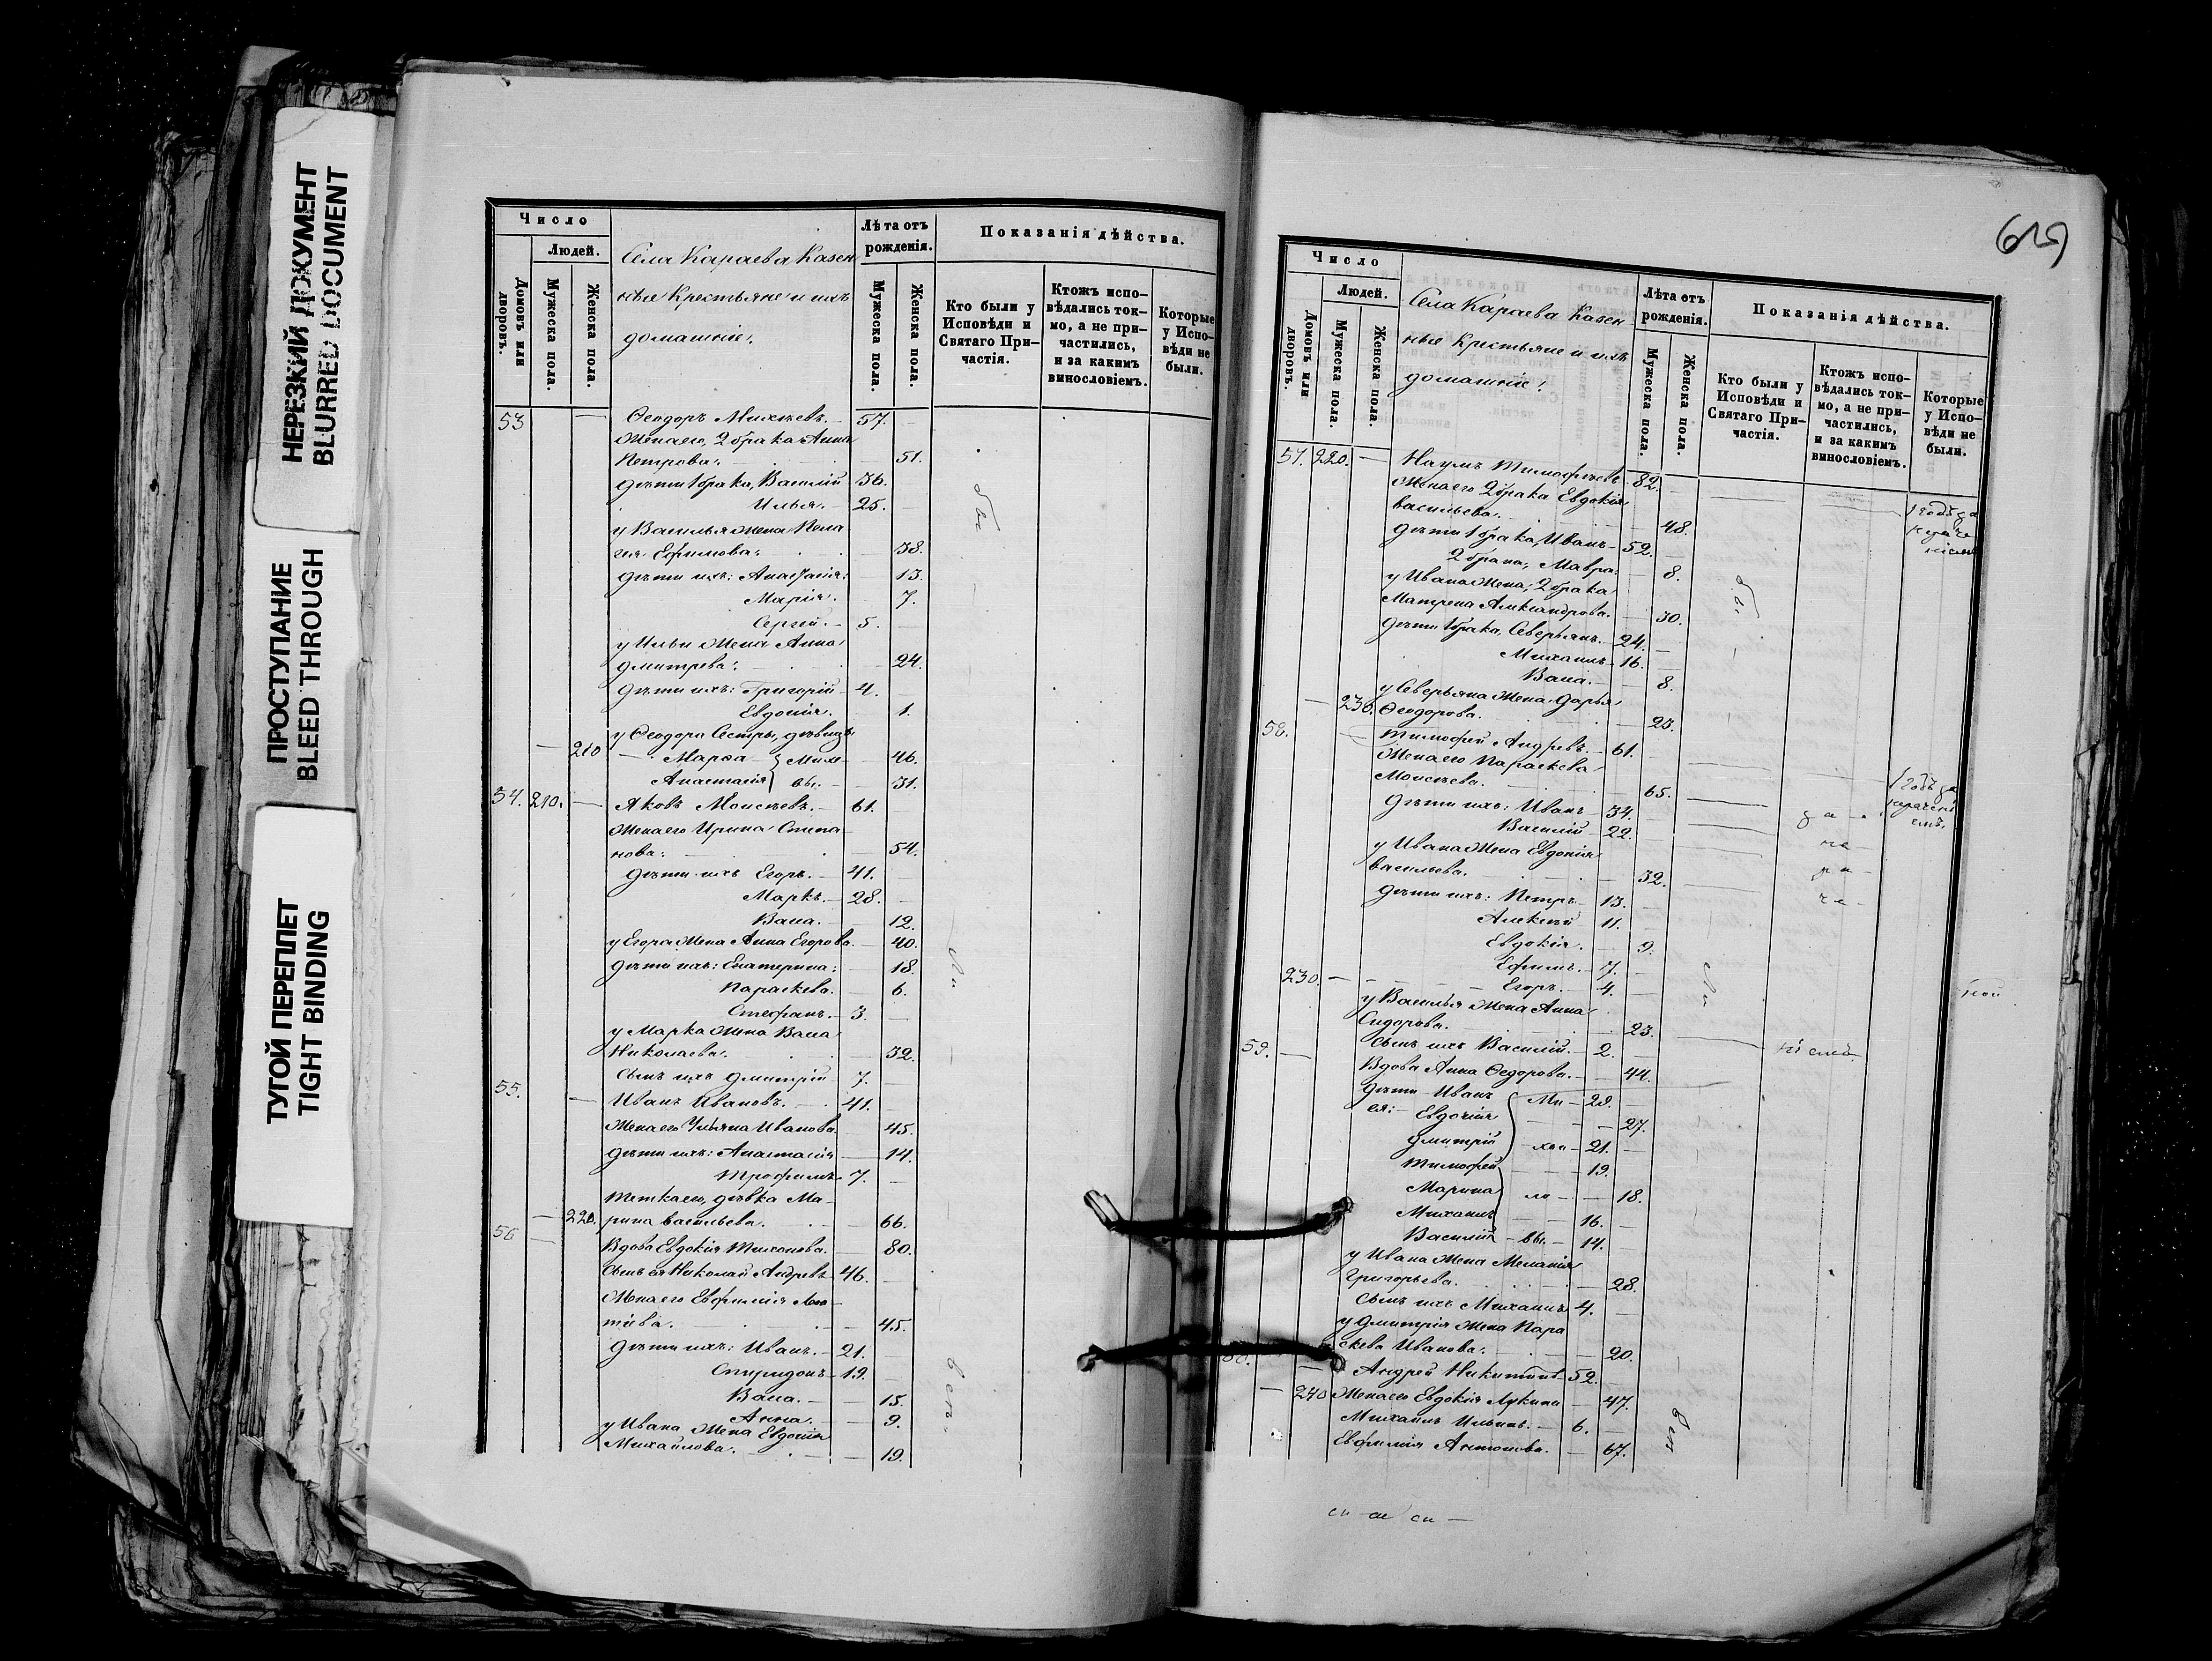 НЕРЕЗКИЙ ДОКУМЕНТ
BLURRED DOCUMENT
ПРОСТУПАНИЕ
BLEED THROUGH
ТУГОЙ ПЕРЕПЛЕТ
TIGHT BINDING
Число
Людей.
Домовъ или дворовъ.
Мужеска пола.
Женска пола.
Села Караева Казен
ные Крестьяне и ихъ
домашніе:
Лѣта отъ рожденія.
Мужеска пола.
Женска пола.
Показанія дѣйства.
Кто были у Исповѣди и Святаго При-частія.
Ктожъ испо-вѣдались ток-мо, а не при-частились, и за какимъ винословіемъ.
Которые у Испо-вѣди не были.
53 — Ѳеодоръ Михѣевъ. — 57. —
Жена его, 2 брака Анна
Петрова. — 51.
дѣти 1 брака, Василій 36. —
Илья. — 25. —
у Василья жена Пела
гія Ефимова: 38.
дѣти ихъ: Анастасія: 13.
Марія. 7.
Сергѣй. — 5. —
у Ильи жена Анна
Дмитрева: — 24.
дѣти ихъ: Григорій 4. —
Евдокія. 1.
у Ѳеодора Сестры, дѣвицы
— 210 — Марѳа { Михе — 46.
Анастасія { вы. — 31.
54. 210. — Яковъ Моисѣевъ. — 61. —
Жена его Ирина Степа
нова: — 54.
дѣти ихъ Егоръ. — 41. —
Маркъ. — 28. —
Васа. — 12.
у Егора жена Анна Егорова. — 40.
дѣти ихъ: Екатерина: — 18.
Параскева. — 6.
Стефанъ. — 3. —
у Марка жена Васа
Николаева. 32.
Сынъ ихъ Дмитрій 7. —
55. — Иванъ Ивановъ. — 41. —
Жена его Ульяна Иванова. 45.
дѣти ихъ: Анастасія — 14.
Трофимъ 7. —
Тетка его, дѣвка Ма-
— 220. рина Васильева. — 66.
56 — Вдова Евдокія Тихонова. — 80.
Сынъ ея Николай Андревъ 46. —
Жена его Евфимія
45.
дѣти ихъ: Иванъ. — 21. —
Спиридонъ 19. —
Васа. — 15.
Анна. — 9.
у Ивана жена Евдокія
Михайлова. — 19.
бы
ли
вси
Число
Людей.
Домовъ или дворовъ.
Мужеска пола.
Женска пола.
Села Караева Казен
ные Крестьяне и ихъ
домашніе:
Лѣта отъ рожденія.
Мужеска пола.
Женска пола.
Показанія дѣйства.
Кто были у Исповѣди и Святаго При-частія.
Ктожъ испо-вѣдались ток-мо, а не при-частились, и за какимъ винословіемъ.
Которые у Испо-вѣди не были.
57. 220. — Наумъ Тимофѣевъ 82. —
Жена его 2 брака Евдокія
Васильева. — 48.
дѣти 1 брака, Иванъ — 52. —
2 брака, Мавра. — 8.
у Ивана жена, 2 брака
Матрена Александрова. — 30.
дѣти 1 брака, Северьянъ. — 24. —
Михаилъ — 16. —
Васа. — 8.
у Северьяна жена Дарья
— 230. Ѳеодорова. — 23.
58. — Тимофей Андревъ. — 61. —
Жена его Параскева
Моисѣева. 65.
дѣти ихъ: Иванъ 34. —
Василій — 22. —
у Ивана жена Евдокія
Васильева. 32.
дѣти ихъ: Петръ — 13. —
Алексѣй 11. —
Евдокія. 9.
Ефимъ. — 7. —
230. — Егоръ. — 4. —
у Василья жена Анна
Сидорова. 23.
Сынъ ихъ Василій. — 2. —
59. — Вдова Анна Ѳедорова. — 44.
дѣти Иванъ { Ми — 29. —
ея: — Евдокія — 27.
Дмитрій — хаи — 21. —
Тимофей — 19. —
Марина ло — 18.
Михаилъ 16. —
Василій — вы. — 14. —
у Ивана жена Меланія
Григорьева. 28.
Сынъ ихъ Михаилъ 4. —
у Дмитрія жена Пара
скева Иванова. 20.
— Андрей Никитинъ 52. —
— 240 Жена его Евдокія Лукина — 47.
Михаилъ Ильинъ. — 6. —
Евфимія Антонова. — 67.
бы
ли
вси
1 годъ за
1 годъ за
за
не
ра
че
ніемъ